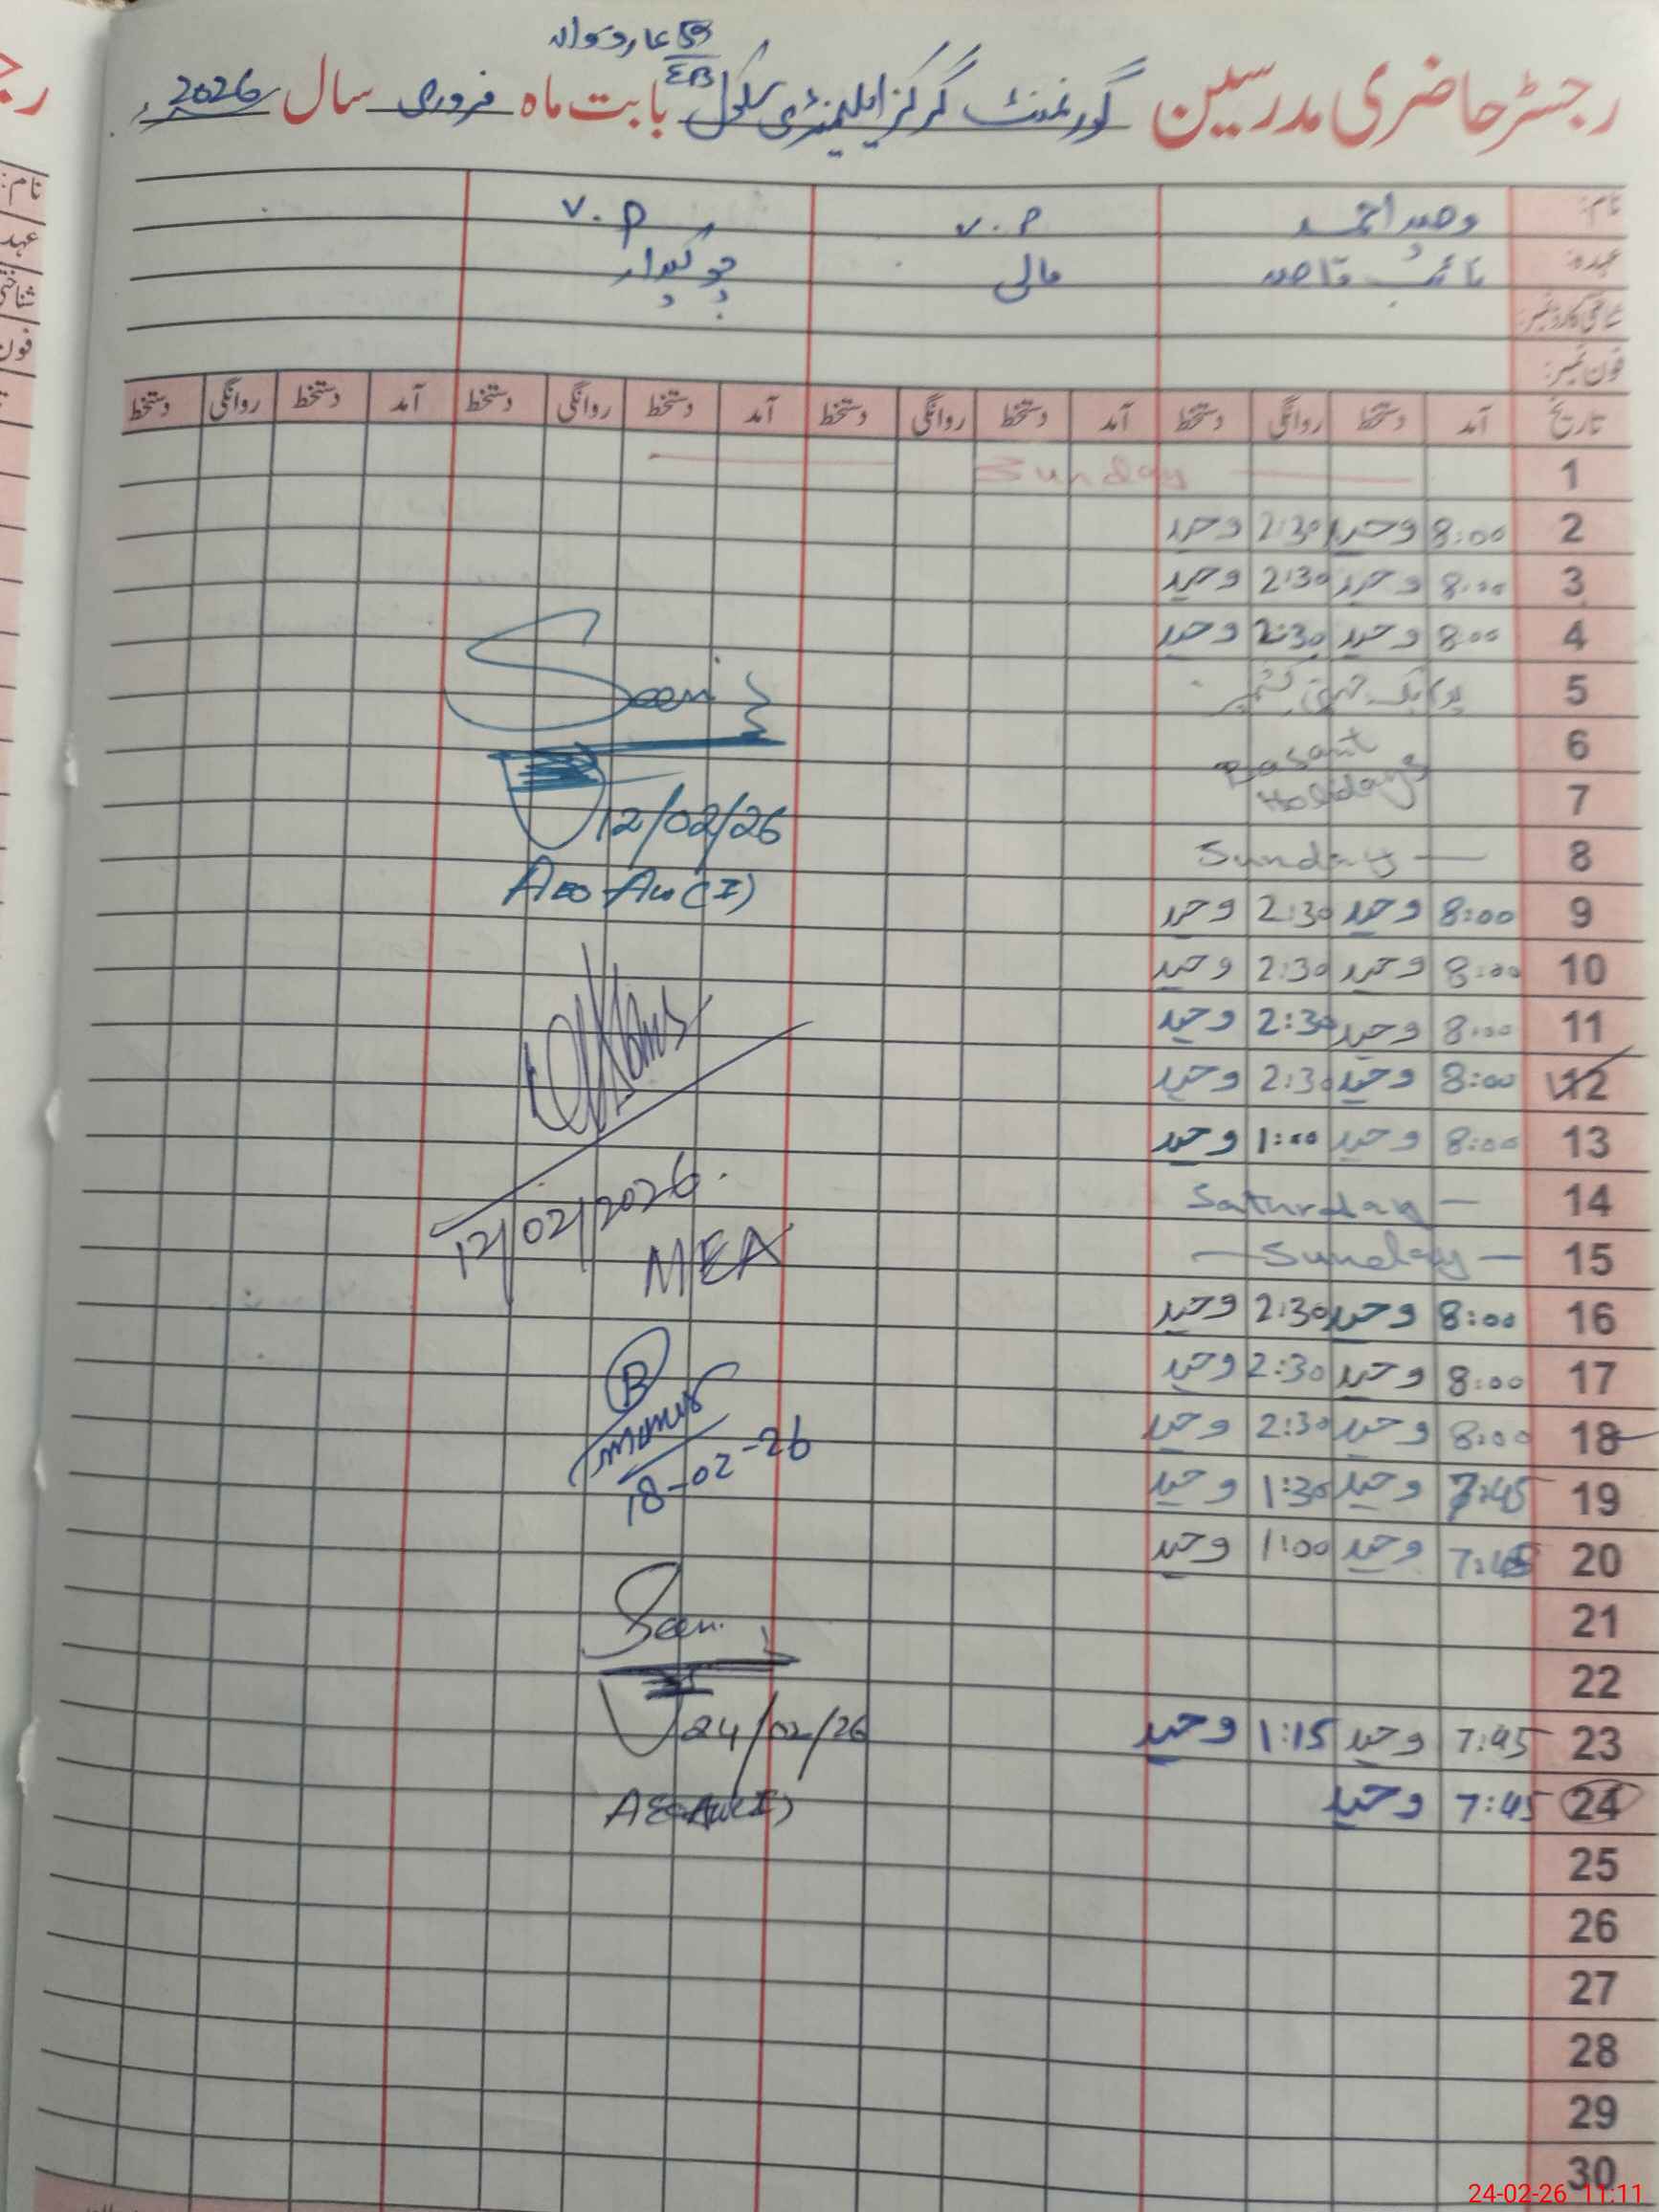 59/EB عارفوالہ
رجسٹر حاضری مدرسین گورنمنٹ گرلز ایلیمنٹری سکول بابت ماہ فروری سال 2026ء
نام: وحید احمد v.p v.p
عہدہ: نائب قاصد مالی چوکیدار
شناختی کارڈ نمبر:
فون نمبر:
تاریخ آمد دستخط روانگی دستخط آمد دستخط روانگی دستخط آمد دستخط روانگی دستخط آمد دستخط روانگی دستخط
1 Sunday
2 8:00 وحید 2:30 وحید
3 8:00 وحید 2:30 وحید
4 8:00 وحید 2:30 وحید
5 یوم یکجہتی کشمیر
6 Basant
7 Holidays
8 Sunday
9 8:00 وحید 2:30 وحید
10 8:00 وحید 2:30 وحید
11 8:00 وحید 2:30 وحید
12 8:00 وحید 2:30 وحید
13 8:00 وحید 1:00 وحید
14 Sathurday
15 Sunday
16 8:00 وحید 2:30 وحید
17 8:00 وحید 2:30 وحید
18 8:00 وحید 2:30 وحید
19 7:45 وحید 1:30 وحید
20 7:45 وحید 1:00 وحید
21
22
23 7:45 وحید 1:15 وحید
24 7:45 وحید
25
26
27
28
29
30
Seen
12/02/26
AEO Aw (I)
12/02/2026.
MEA
B
18-02-26
Seen.
24/02/26
AEO Aw (I)
نام:
عہد
شناختی
فون
24-02-26 11:11